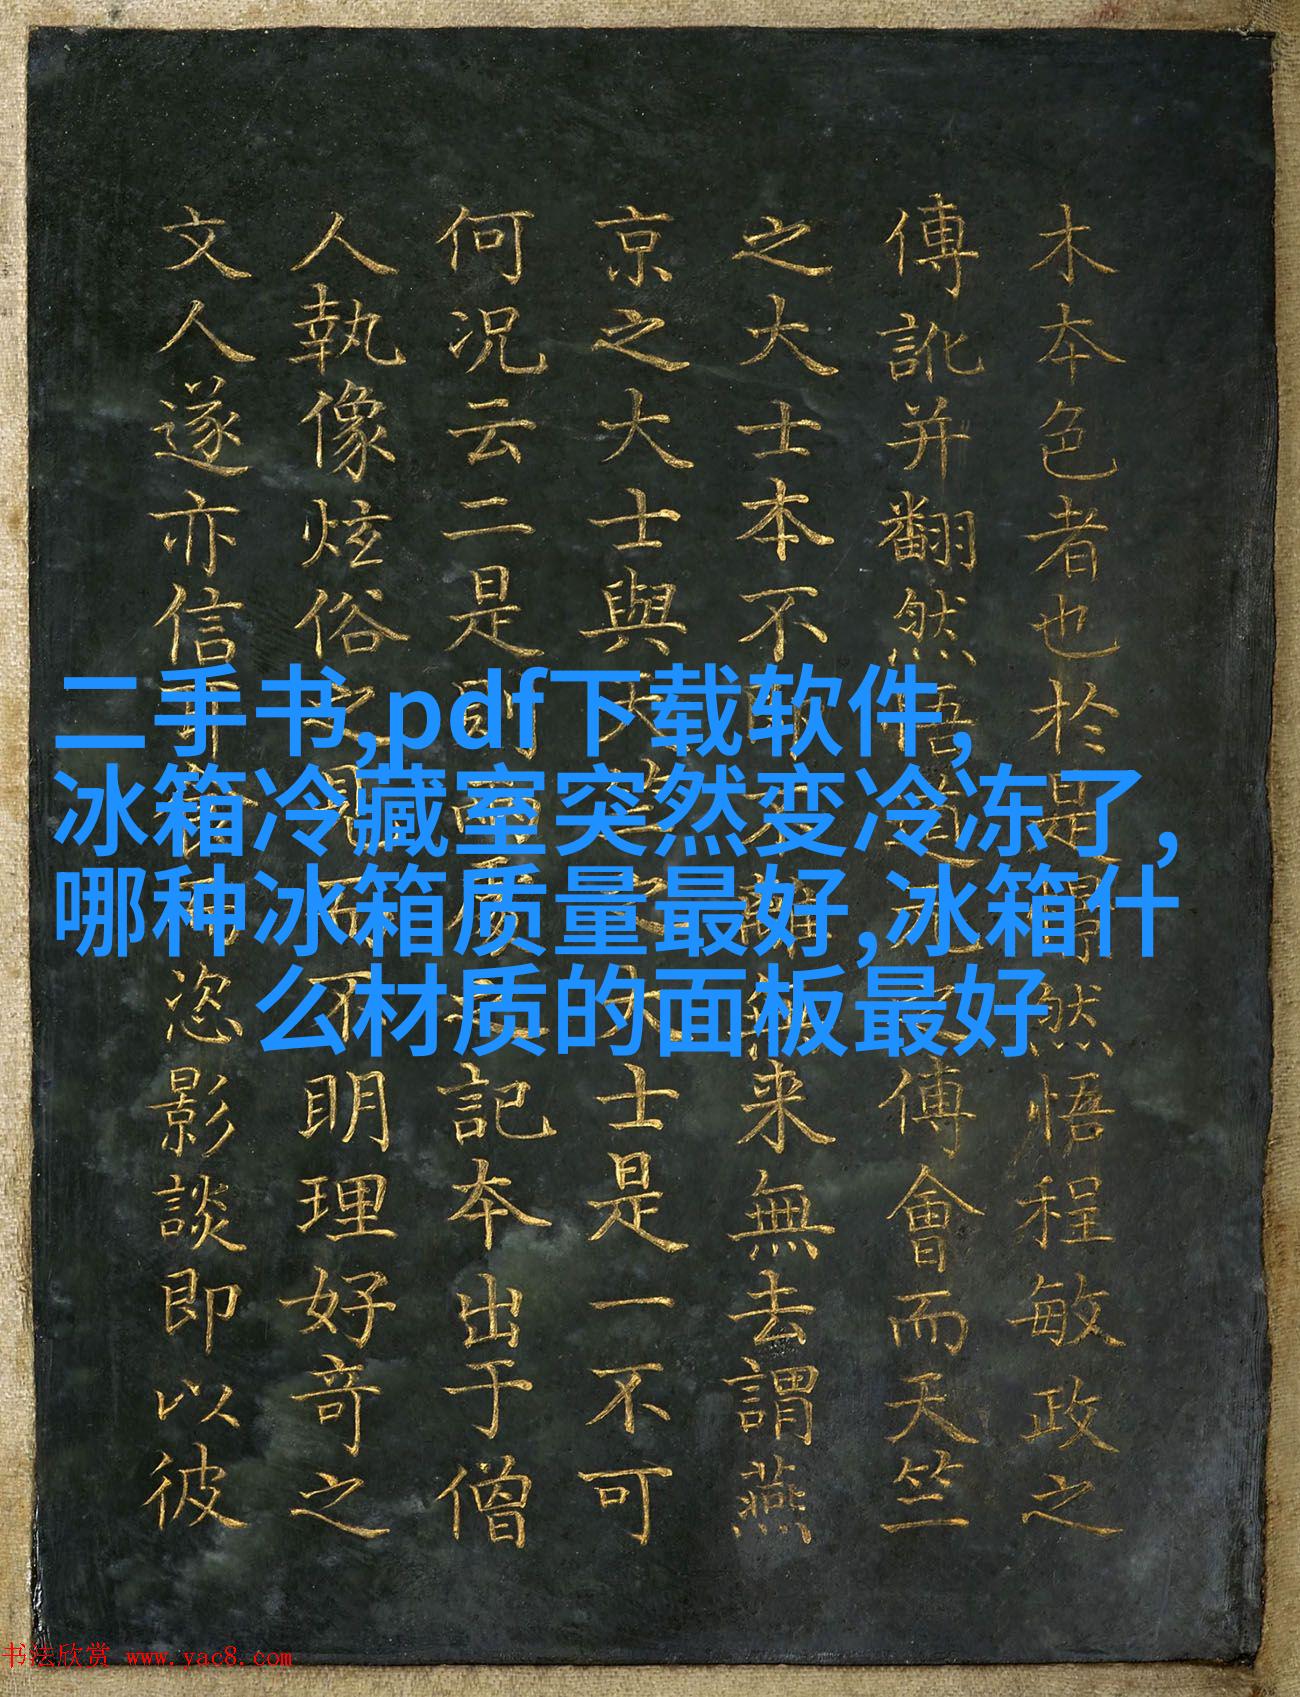 木本色者也於是然悟程敏政之
傅訛并翻然悟道之傅會而天竺
之大士本不即不離無来無去謂燕
京之大士與天竺之大士是一不可
何况云二是則之記本出于僧
人執像炫俗之見而不明理好奇之
文人遂亦信恣影談即以彼
二手书,pdf下载软件,
冰箱冷藏室突然变冷冻了,
哪种冰箱质量最好,冰箱什
么材质的面板最好
书法欣赏 www.yac8.com